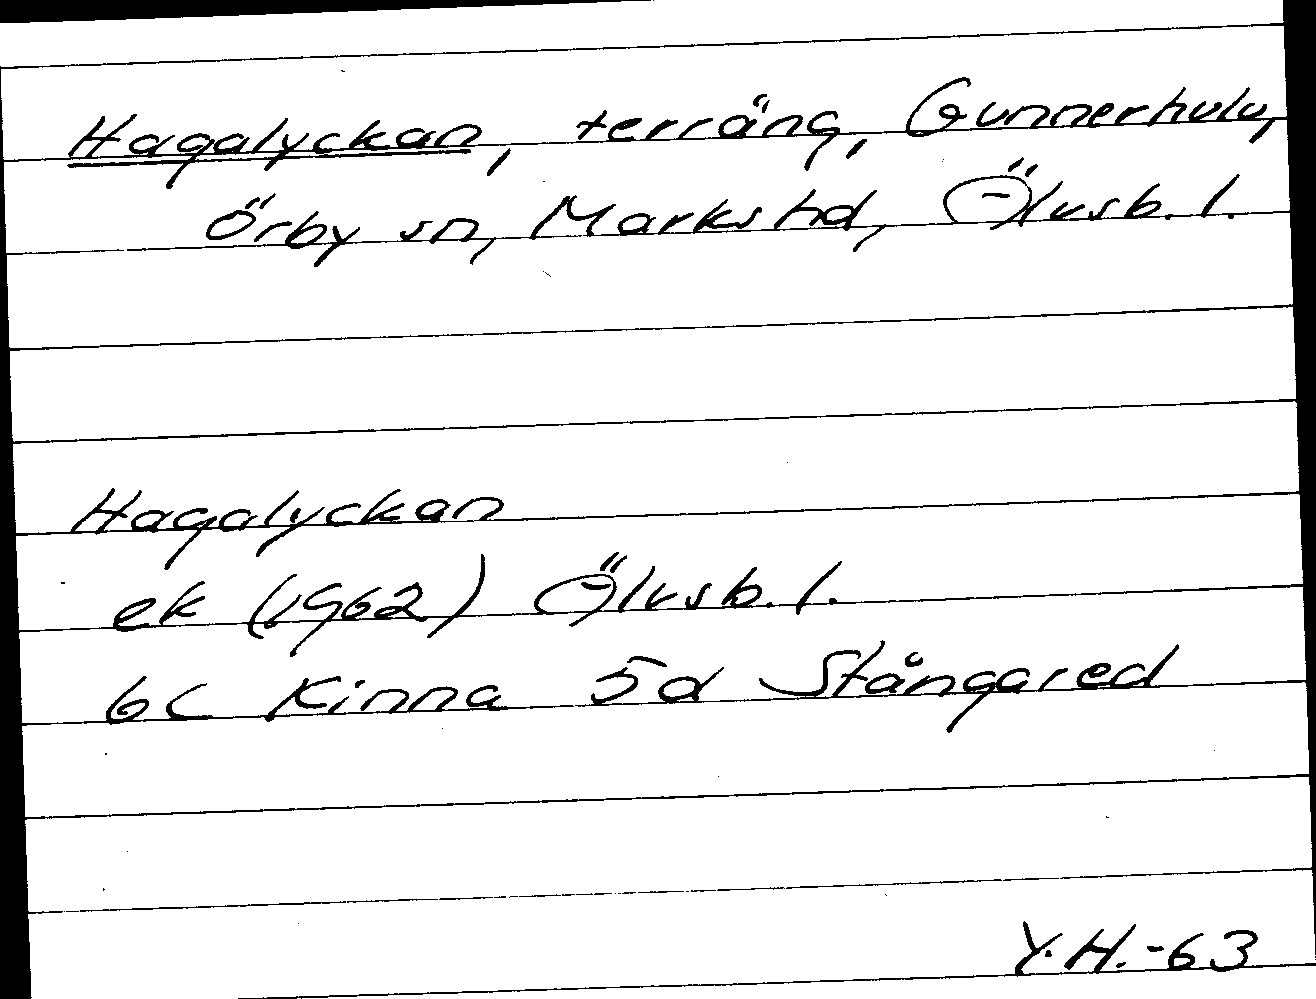 Hagalyckan, terräng, Gunnerhulu,
Örby sn, Marks hd, Älvsb. l.
Hagalyckan
ek (1962) Älvsb. l.
6C Kinna 5d Stångared
Y.H.-63